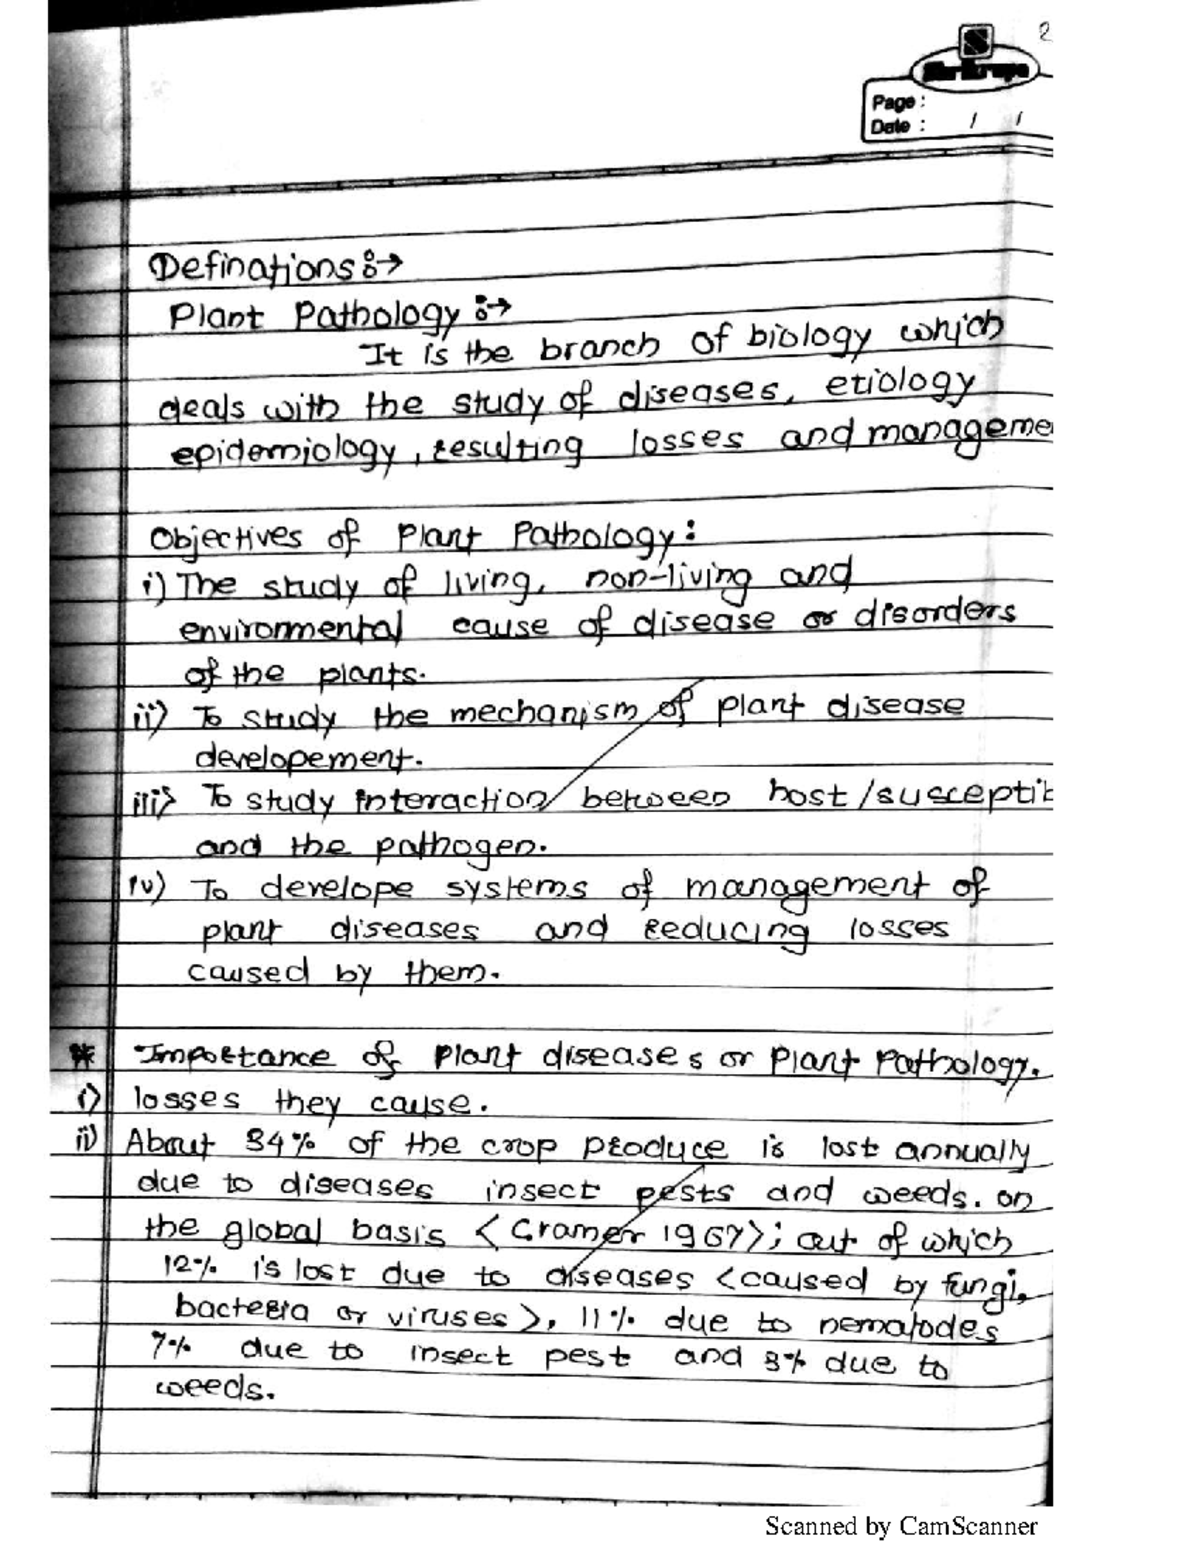 2
Page :
Date : / /
Definations :→
Plant Pathology :→
It is the branch of biology which
deals with the study of diseases, etiology
epidemiology, resulting losses and manageme
Objectives of Plant Pathology :
i) The study of living, non-living and
environmental cause of disease or disorders
of the plants.
ii) To study the mechanism of plant disease
developement.
iii) To study interaction between host/susceptib
and the pathogen.
iv) To develope systems of management of
plant diseases and reducing losses
caused by them.
* Importance of Plant diseases or Plant Pathology.
i) losses they cause.
ii) About 34% of the crop produce is lost annually
due to diseases insect pests and weeds. on
the global basis <Cramer 1967>; out of which
12% is lost due to diseases <caused by fungi,
bacteria or viruses>, 11% due to nematodes
7% due to insect pest and 3% due to
weeds.
Scanned by CamScanner